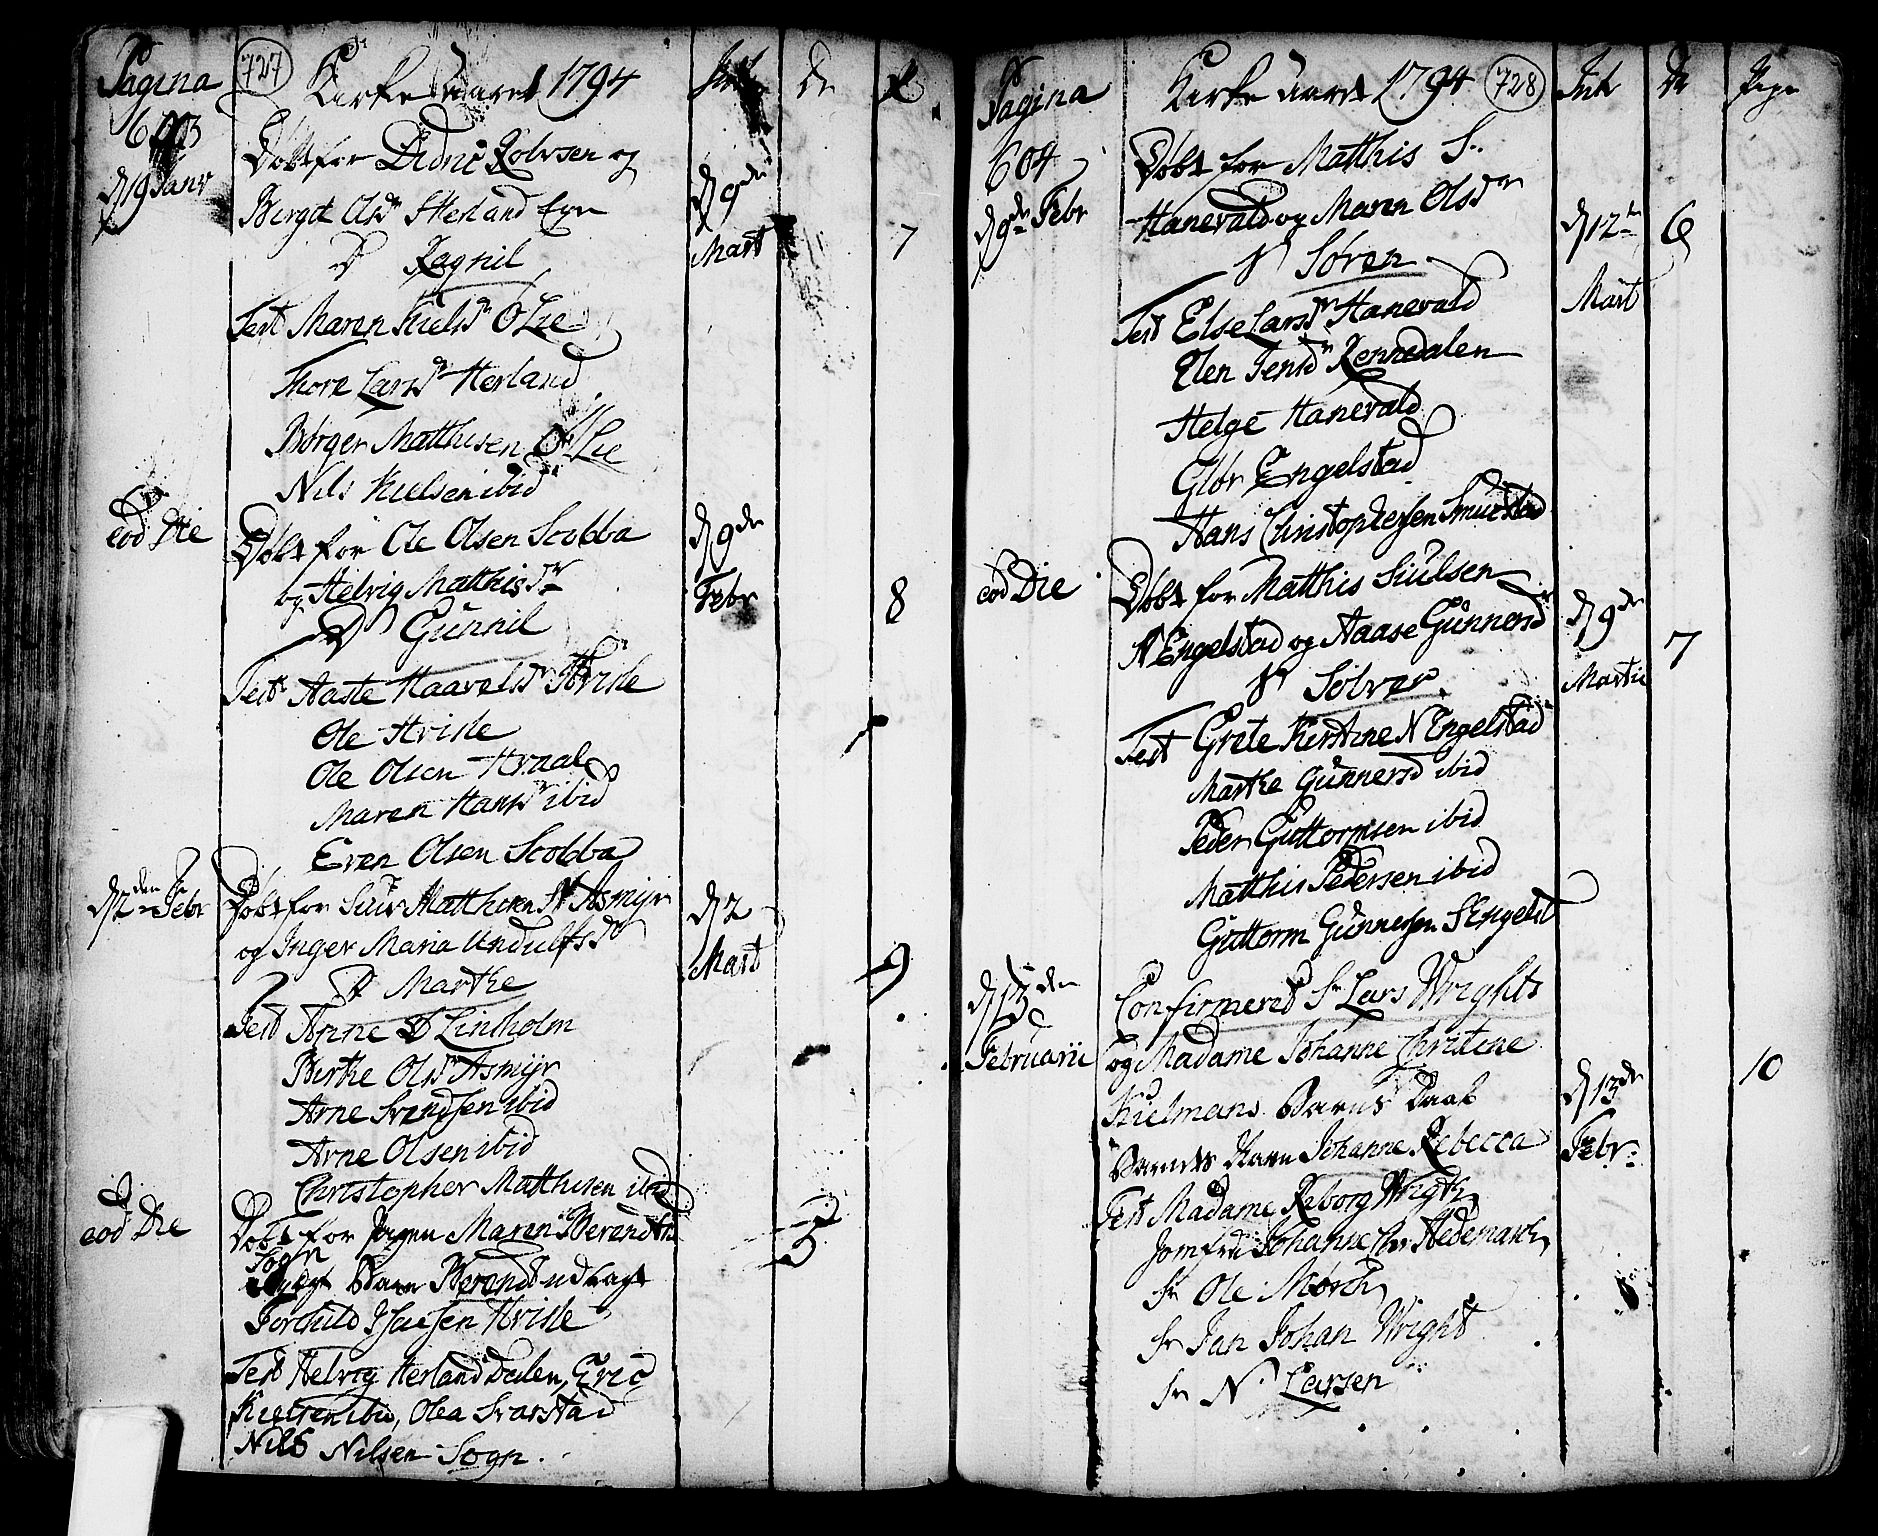 Pagina 727 Kirke Aaret 1794 Int Dr
603
d 19 Janv Døbt for Didric Rolvsen og
Birgit Olsdr Herland Eyn d 9de
D Ragnil Mart 7
Test Maren Kielsdr ØLie
Thore Larsdr Herland
Børger Matthisen ØLie
Nils Kielsen ibid
eod Die Døbt for Ole Olsen Scobba d 9de
og Helvig Mathisdr Febr 8
D Gunnil
Test Aaste Haavelsdr Hvisle
Ole Hvisle
Ole Olsen Hraal
Maren Hansdr ibid
Even Olsen Scobba
d 2den Febr Døbt for Siur Matthisen N Asmyr d 2
og Inger Maria Undulfsdr Mart 9
P Marthe
Test Anne D Linholm
Birthe Olsdr Asmyr
Arne Svendsen ibid
Arne Olsen ibid
Christopher Matthisen ibid
eod Die Døbt for Pigen Maren Berendtsdr 5
Sogn
Barn Berendt udlagt
Torchild Isacsen Hvisle
Test Helvig Herland Dalen, Eric
ibid, Olea Svarstad
Nils Nilsen Sogn.
Pagina Kirke Aaret 1794 728 Int Dr Pige
604 Døbt for Matthis S.
d 9de Febr Hanevald og Maren Olsdr d 12te 6
S Søren Mart
Test Else Larsdr Hanevald
Elen Jensdr Rennedalen
Helge Hanevald
Glør Engelstad
Hans Christophersen Smustad
eod Die Døbt for Matthis Siulsen
N Engelstad og Aase Gunnersd d 9de 7
S Solver Martii
Test Grete Kirstine N Engelstad
Marthe Gunnersd ibid
Peder Guttormsen ibid
Matthis Pedersen ibid
Guttorm Gunnersen S Engelst
d 13den Confirmeret Sr Lars Wrights
Februarii og Madame Johanne Christine 10
Kielmans Barns Daab d 13de
Barnets Navn Johanne Rebecca Febr.
Test Madame Reborg Wright
Jomfru Johanne Chr Hedemark
Sr Ole Mørch
Sr Jan Johan Wright
Sr N. Larsen